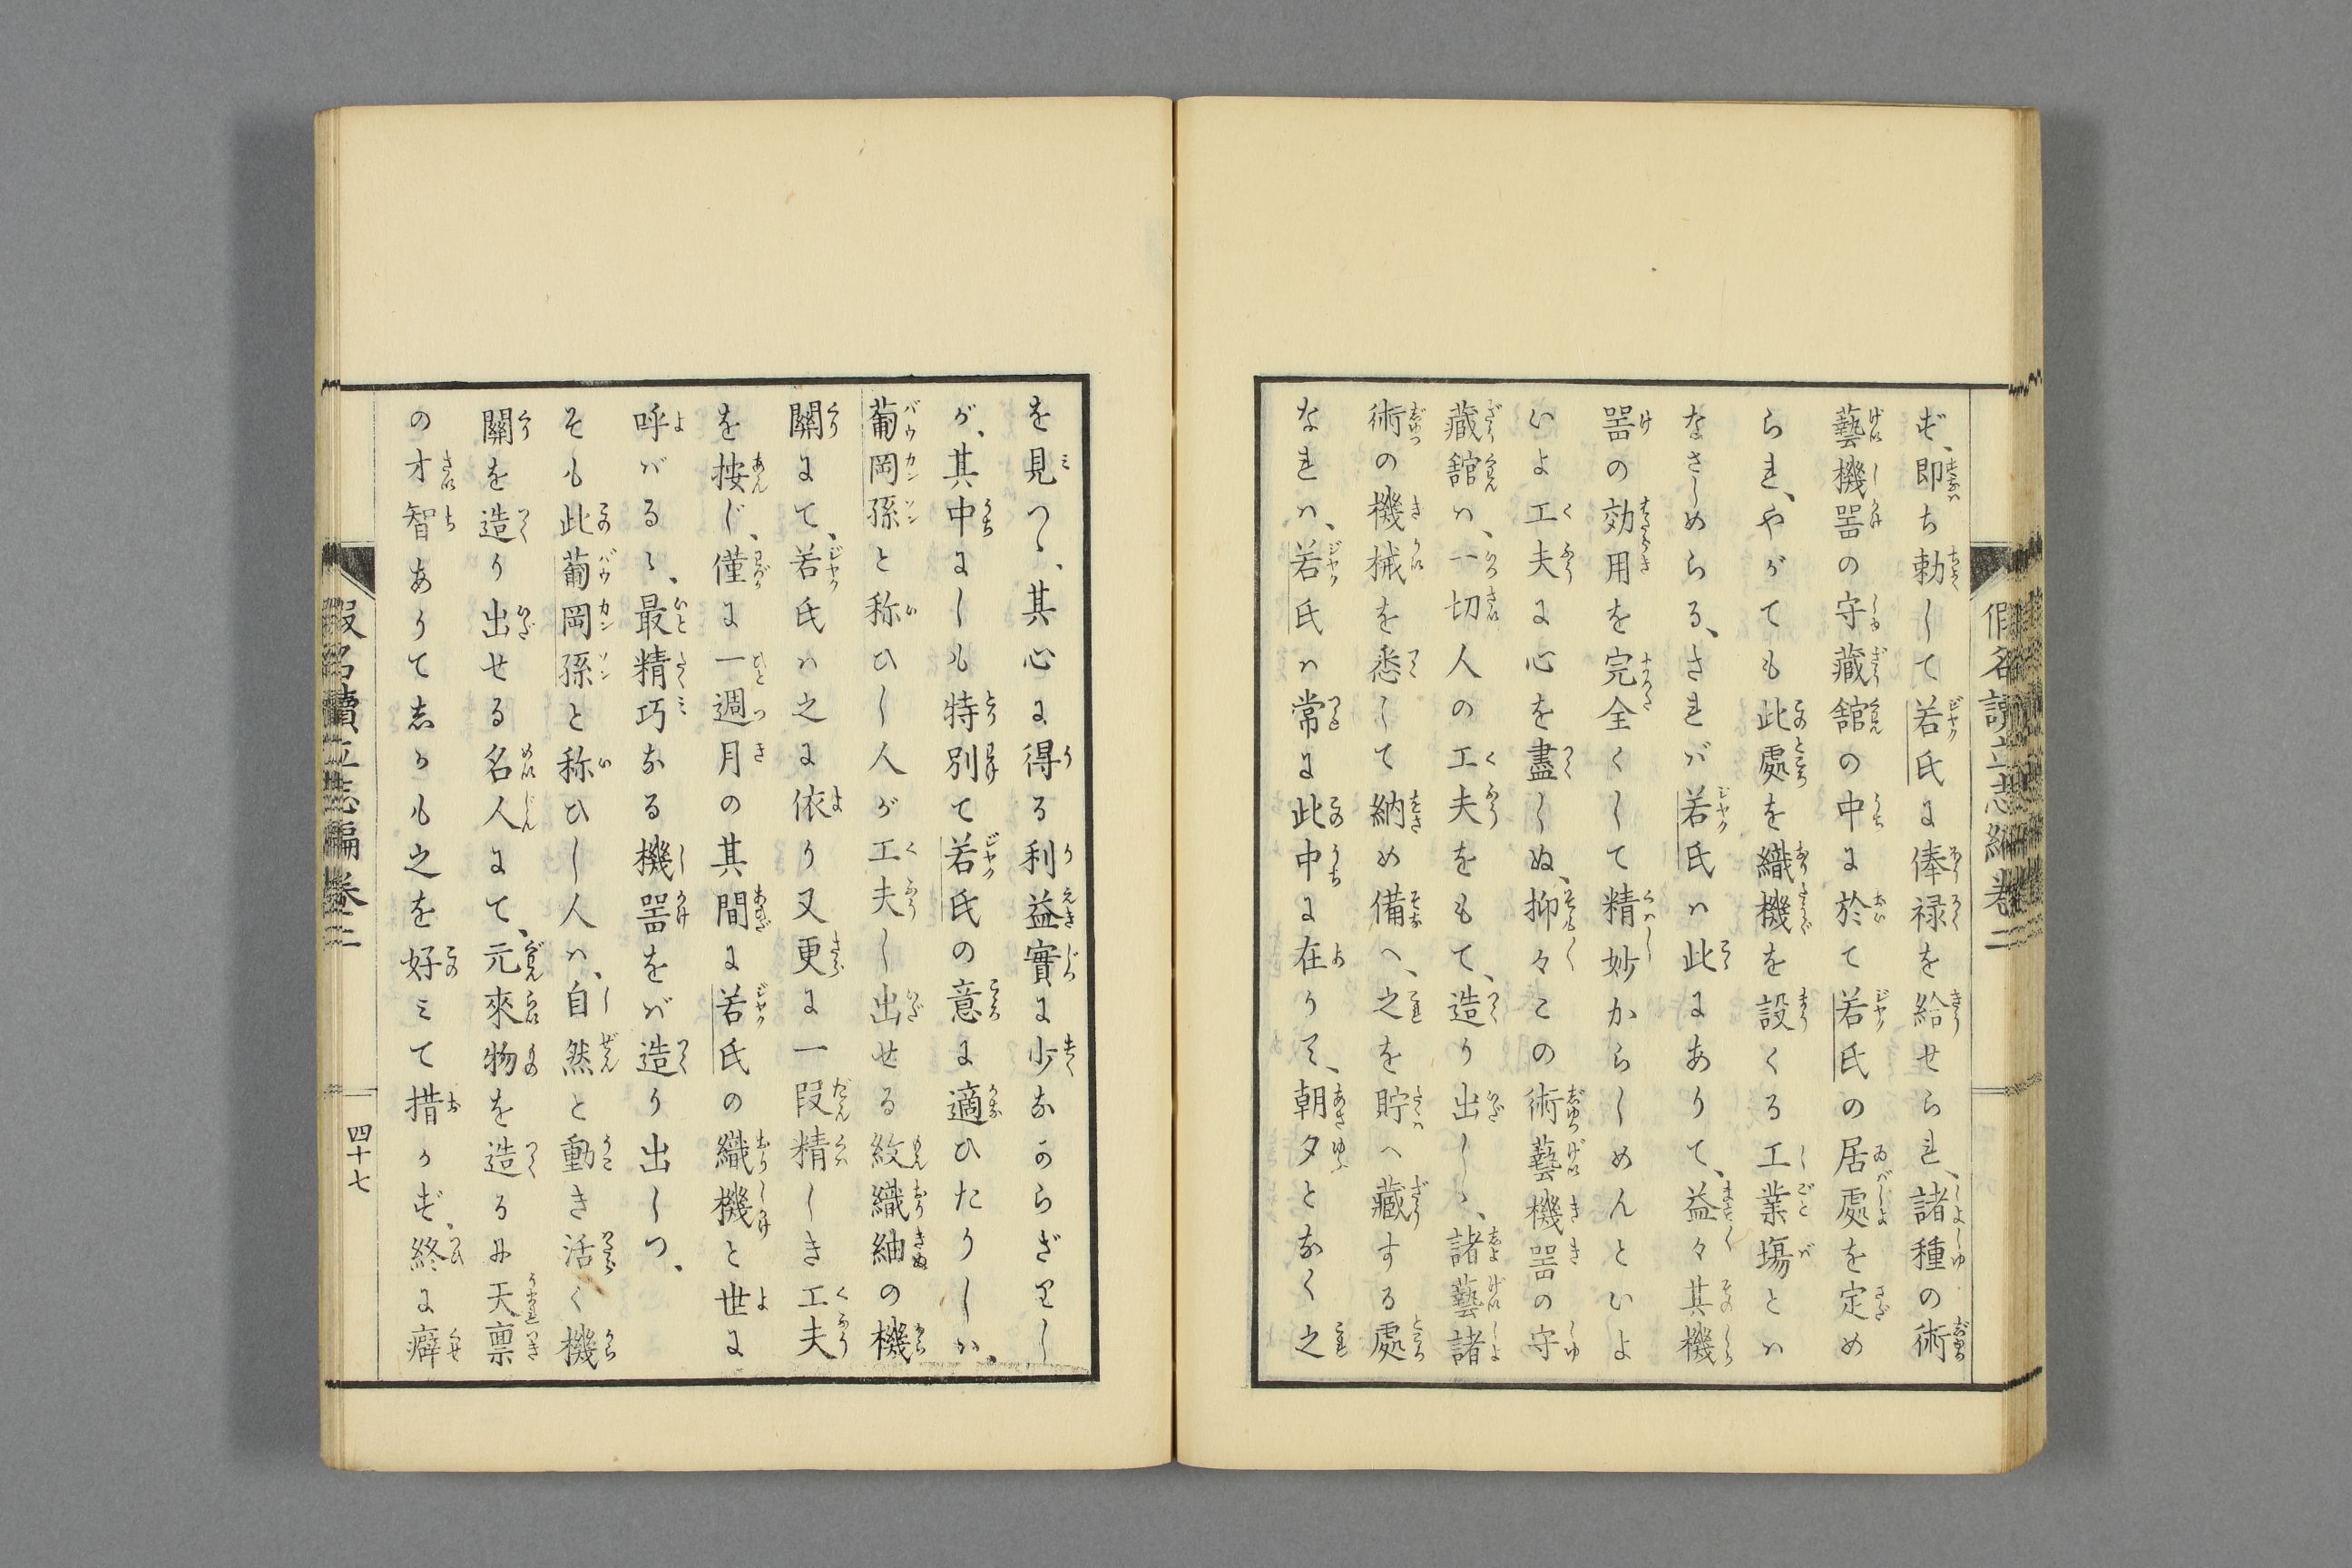 ず、即ち勅して若氏に俸禄を給せられ、諸種の術
藝機噐の守藏舘の中に於て若氏の居處を定め
られ、やがても此處を織機を設くる工業塲とい
なさしめらる、されば若氏ハ此にありて、益々其機
噐の効用を完全くして精妙からしめんといよ
いよ工夫に心を盡しぬ、抑々この術藝機噐の守
藏舘ハ、一切人の工夫をもて、造り出しゝ、諸藝諸
術の機械を悉くして納め備へ、之を貯へ藏する處
なれハ、若氏ハ常に此中に在りて、朝夕となく之
を見つゝ、其心に得る利益實に少なからざりし
が、其中にしも特別て若氏の意に適ひたりしハ、
葡岡孫と称ひし人が工夫し出せる紋織紬の機
關にて、若氏ハ之に依り又更に一段精しき工夫
を按じ、僅に一週月の其間に若氏の織機と世に
呼バるゝ、最精巧なる機噐をバ造り出しつ、
そも此葡岡孫と称ひし人ハ、自然と動き活く機
關を造り出せる名人にて、元來物を造るに天禀
の才智ありて志かも之を好ミて措かず、終に癖
假名讀立志編 卷二
四十七